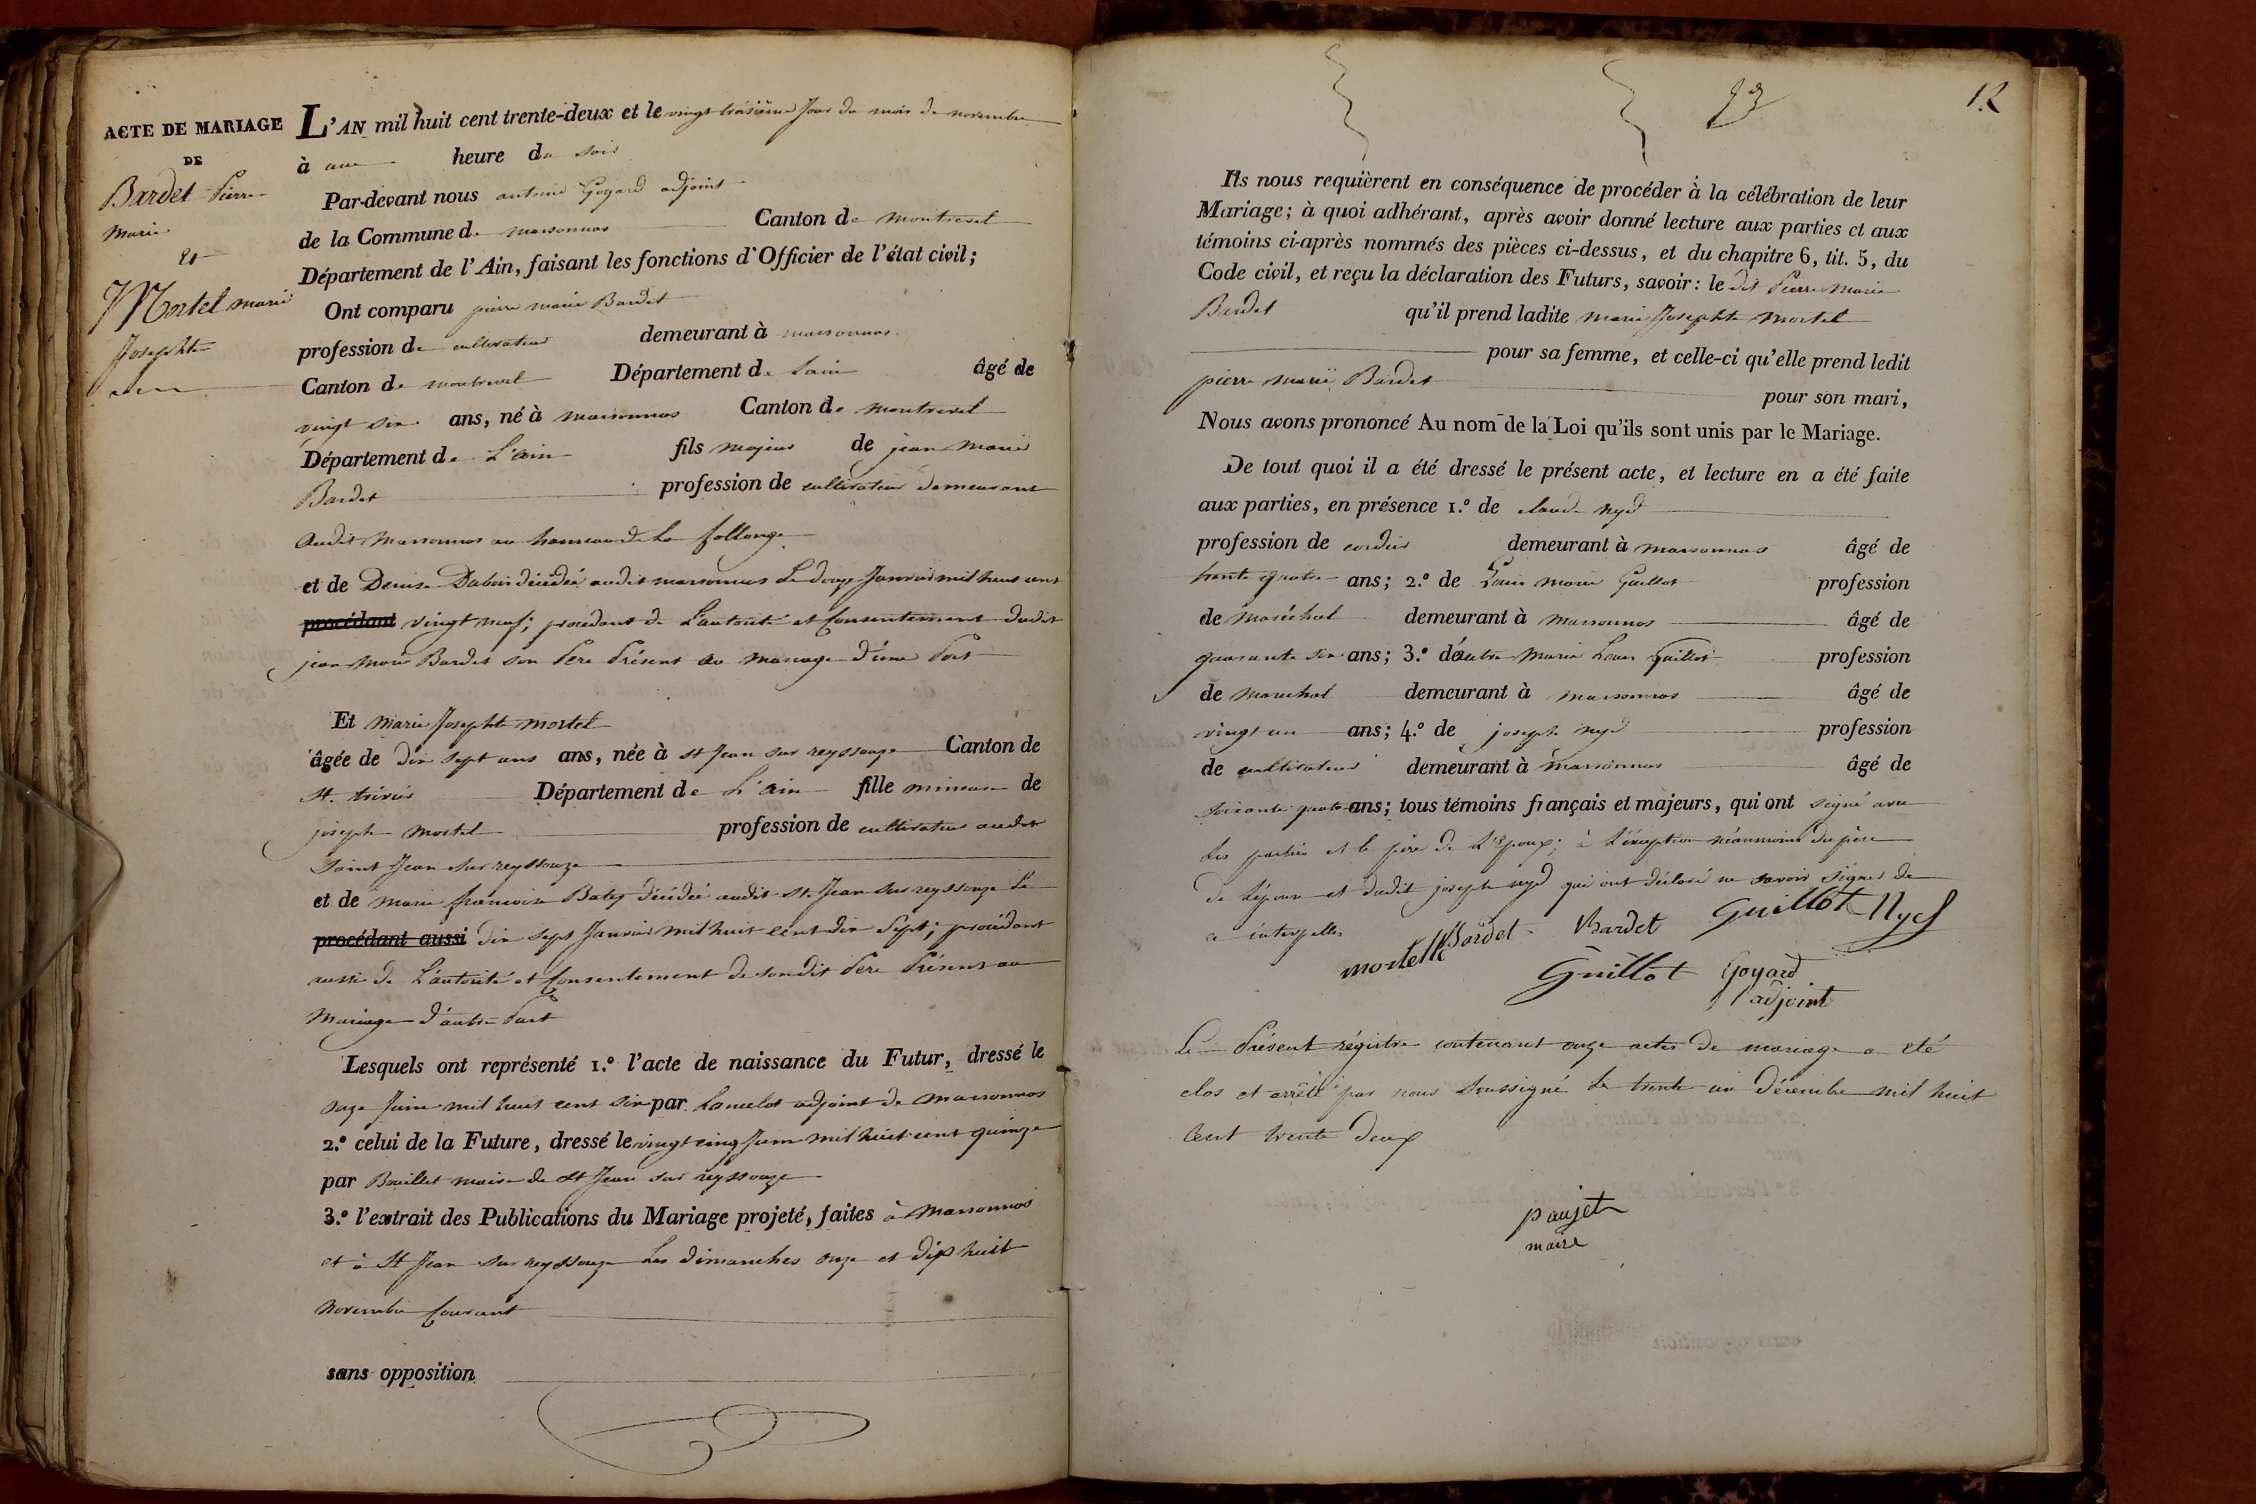 ACTE DE MARIAGE
DE
Bardet Pierre
Marie
et
Mortel marie
Josephte
L'AN mil huit cent trente-deux et le vingt troisième jour du mois de novembre
à une heure du soir
Par-devant nous antoine Goyard adjoint
de la Commune de marsonnas Canton de montrevel
Département de l'Ain, faisant les fonctions d'Officier de l'état civil;
Ont comparu pierre marie Bardet
profession de cultivateur demeurant à marsonnas
Canton de montrevel Département de Lain âgé de
vingt six ans, né à marsonnas Canton de montrevel
Département de L'ain fils majeur de jean marie
Bardet profession de cultivateur demeurant
audit Marsonnas au hameau de la follonge
et de Denise Dubois décédée audit marsonnas Le douze Janvier mil huit cent
procédant vingt neuf; procédant de L'autorité et Consentement dudit
jean marie Bardet son Pere Présent au mariage d'une Part
Et marie Josephte mortel
âgée de dix sept ans ans, née à st Jean sur reyssouze Canton de
st. trivier Département de L'ain fille mineure de
joseph mortel profession de cultivateur audit
Saint Jean sur reyssouze
et de marie francoise Batey décédée audit St. Jean sur reyssouze Le
procédant aussi dix sept Janvier mil huit cent dix sept; procédant
aussi de L'autorité et Consentement de sondit Pere Présent au
Mariage d'autre Part
Lesquels ont représenté 1.º l'acte de naissance du Futur, dressé le
onze Juin mil huit cent six par Lancelot adjoint de Marsonnas
2.º celui de la Future, dressé le vingt cinq Juin mil huit cent quinze
par Bouillet maire de St Jean sur reyssouze
3.º l'extrait des Publications du Mariage projeté, faites à Marsonnas
et à St Jean sur reyssouze Les dimanches onze et dix huit
Novembre Courant
sans opposition
12
Ils nous requièrent en conséquence de procéder à la célébration de leur
Mariage; à quoi adhérant, après avoir donné lecture aux parties et aux
témoins ci-après nommés des pièces ci-dessus, et du chapitre 6, tit. 5, du
Code civil, et reçu la déclaration des Futurs, savoir: le dit Pierre Marie
Bardet qu'il prend ladite marie Josephte mortel
pour sa femme, et celle-ci qu'elle prend ledit
pierre marie Bardet
pour son mari,
Nous avons prononcé Au nom de la Loi qu'ils sont unis par le Mariage.
De tout quoi il a été dressé le présent acte, et lecture en a été faite
aux parties, en présence 1.º de claude nyd
profession de cordier demeurant à marsonnas âgé de
trente quatre ans; 2.º de Louis Marie Guillot profession
de maréchal demeurant à marsonnas âgé de
quarante six ans; 3.º d'autre Marie Louis Guillot profession
de marechal demeurant à marsonnas âgé de
vingt un ans; 4.º de joseph nyd profession
de cultivateur demeurant à marsonnas âgé de
soixante quatre ans; tous témoins français et majeurs, qui ont signé avec
les parties et le père de L'époux; à L'exception néanmoins du père
de l'épouse et dudit joseph nyd qui ont déclaré ne savoir signer de
ce interpellés
mortelle Bardet Bardet Guillot Nyd
Guillot Goyard
adjoint
Le Présent régistre contenant onze actes de mariage a été
clos et arrêté par nous soussigné Le trente un décembre mil huit
Cent trente deux
paujet
maire